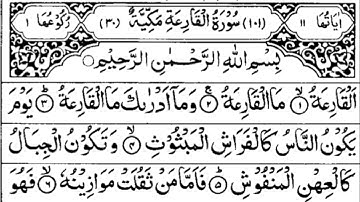 اٰيَاتُهَا ١١ (١٠١) سُوْرَةُ الْقَارِعَةِ مَكِّيَّةٌ (٣٠) رُكُوْعُهَا ١
بِسْمِ اللّٰهِ الرَّحْمٰنِ الرَّحِيْمِ
اَلْقَارِعَةُ ۙ﴿١﴾ مَا الْقَارِعَةُ ۚ﴿٢﴾ وَمَاۤ اَدْرٰىكَ مَا الْقَارِعَةُ ؕ﴿٣﴾ يَوْمَ
يَكُوْنُ النَّاسُ كَالْفَرَاشِ الْمَبْثُوْثِ ۙ﴿٤﴾ وَتَكُوْنُ الْجِبَالُ
كَالْعِهْنِ الْمَنْفُوْشِ ؕ﴿٥﴾ فَاَمَّا مَنْ ثَقُلَتْ مَوَازِيْنُهٗ ۙ﴿٦﴾ فَهُوَ